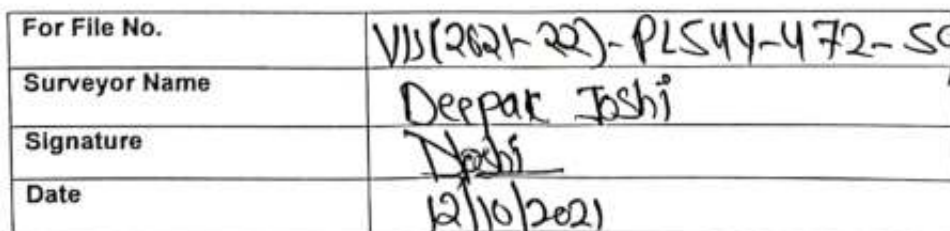 For File No. VIS(2021-22)-PL544-472-
Surveyor Name Deepak Joshi
Signature
Date 12/10/2021